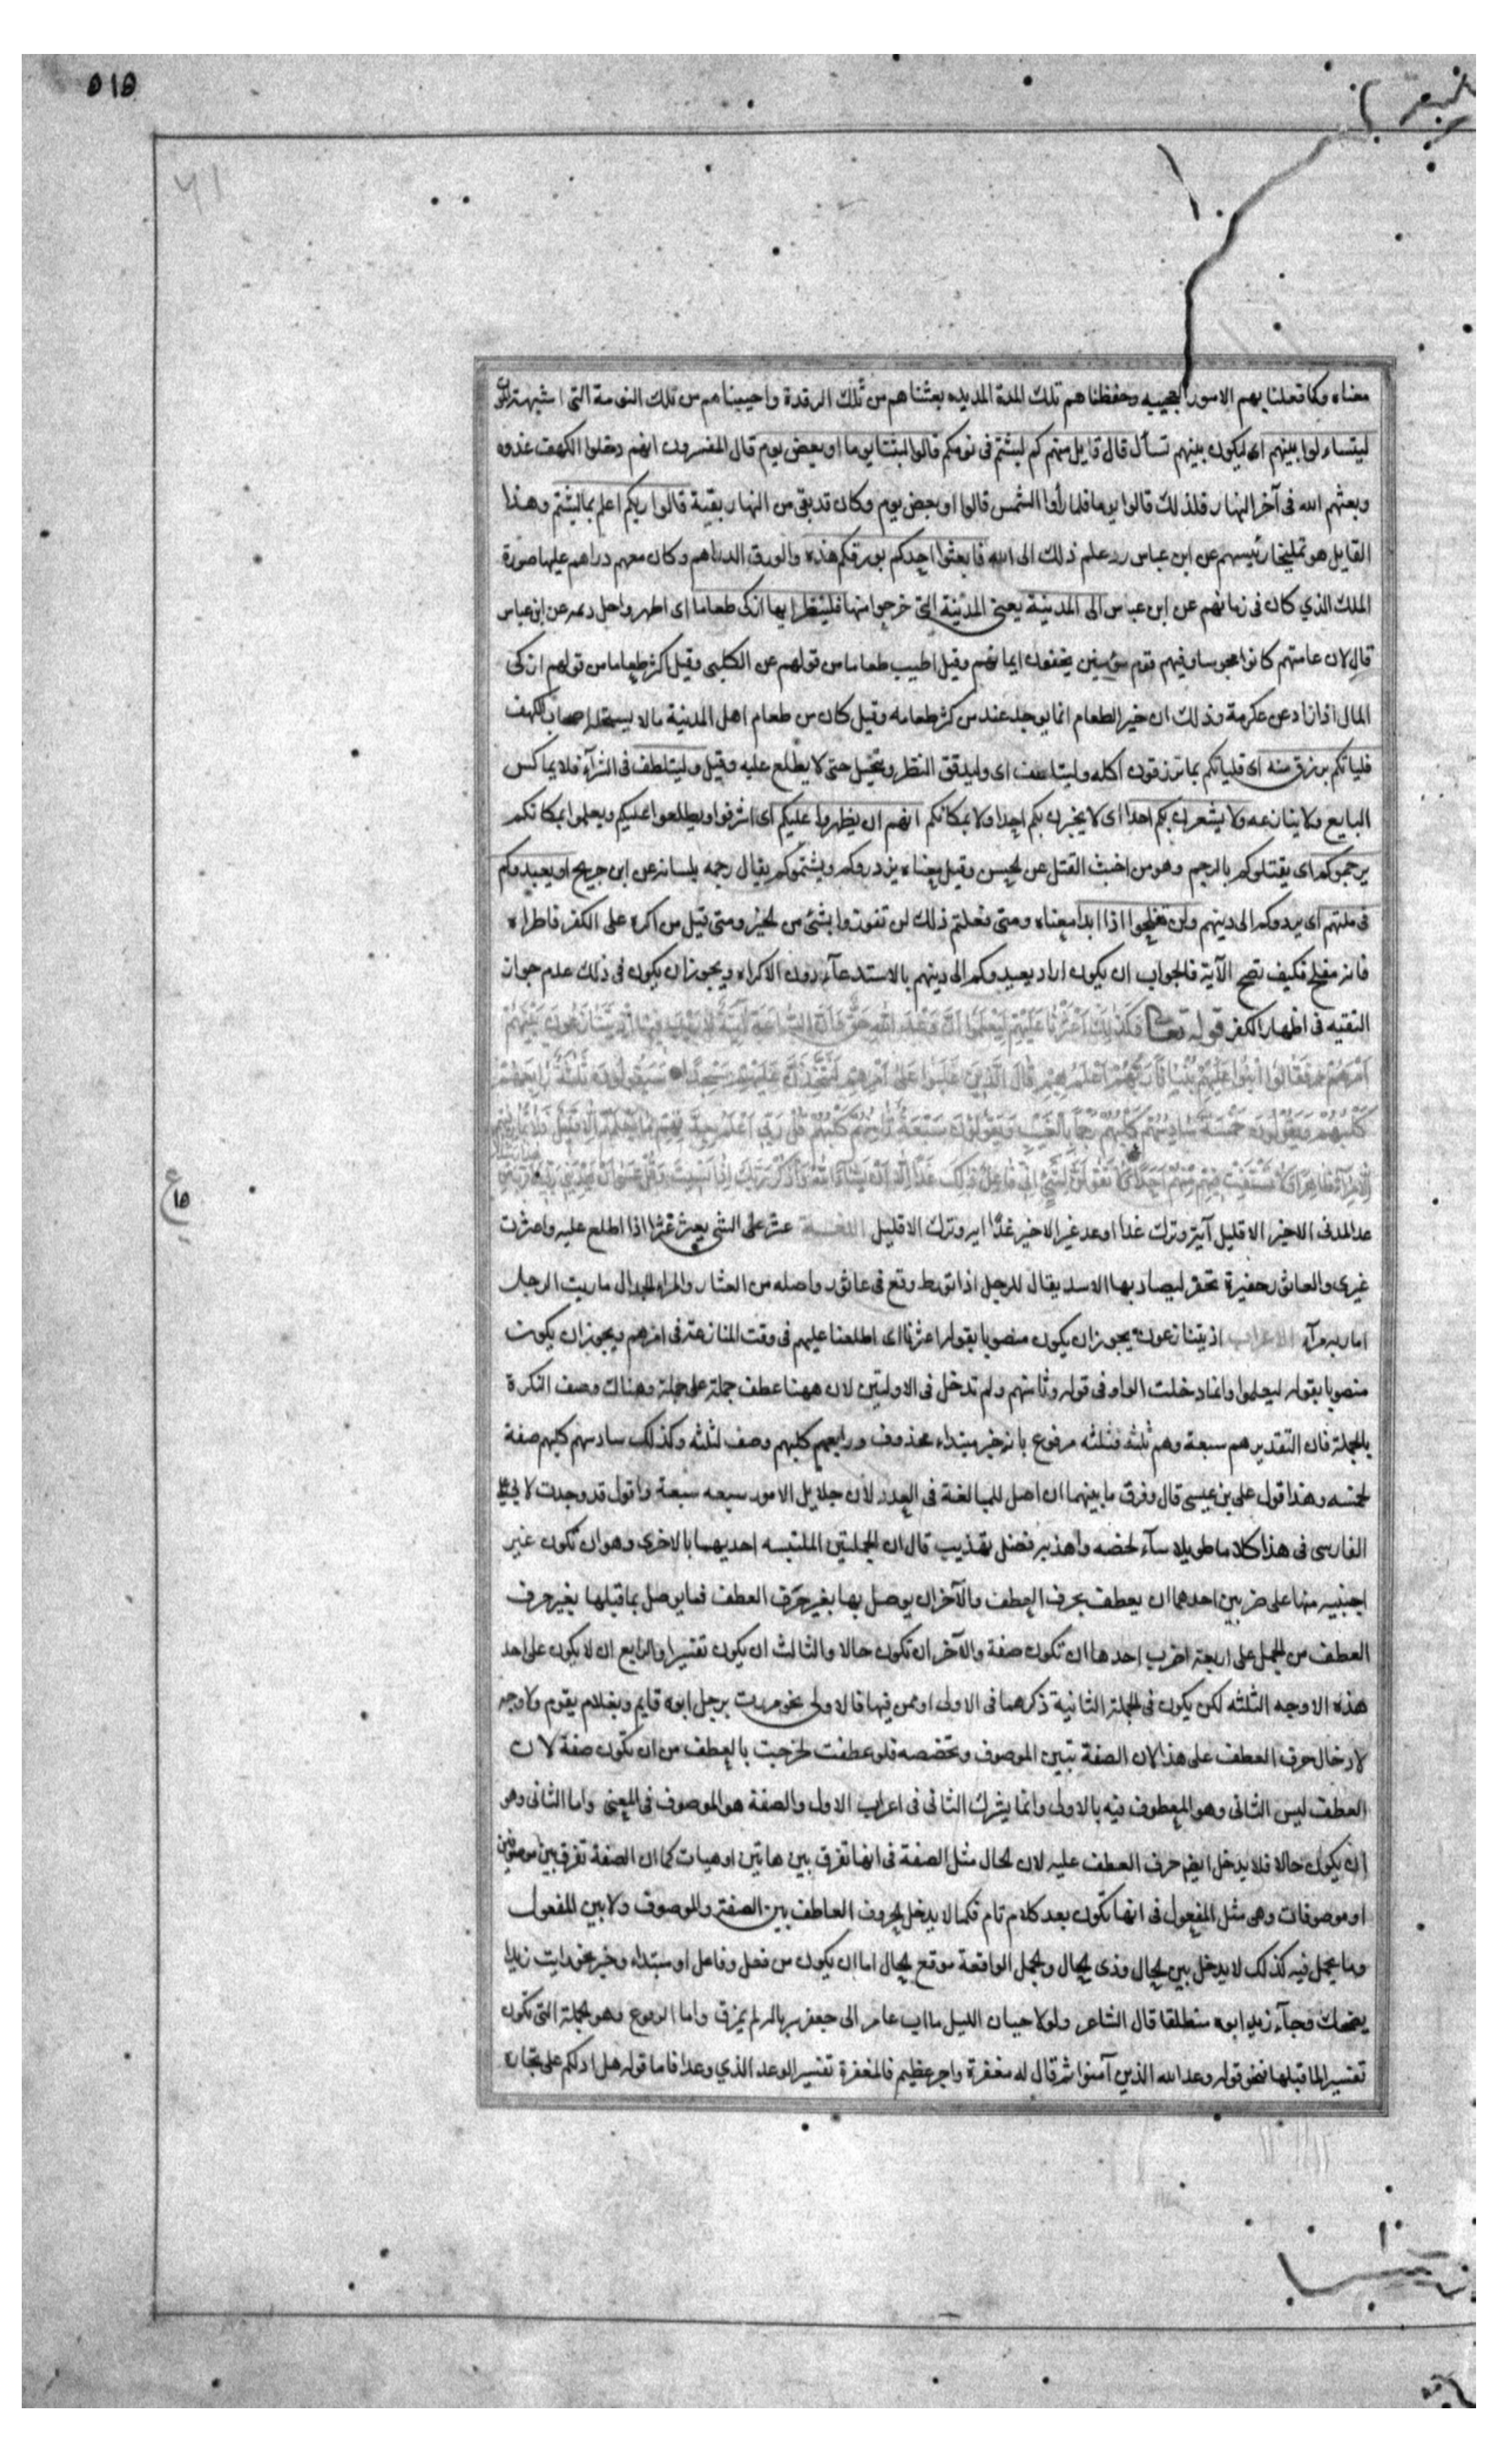 ٥١٥
معناه وكما فعلنا بهم الامور العجيبه وحفظنا هم تلك المدة المديده بعثنا هم من تلك الرقدة واحييناهم من تلك النومة التى اشبهت الموت
ليتساءلوا بينهم اى ليكون بينهم تسأل قال قايل منهم كم لبثتم فى نومكم قالوا لبثنا يوما او بعض يوم قال المفسرون انهم دخلوا الكهف غدوه
وبعثهم الله فى آخر النهار فلذلك قالوا يوما فلما رأوا الشمس قالوا او بعض يوم وكان قد بقى من النهار بقية قالوا ربكم اعلم بما لبثتم وهذا
القايل هو تمليخا رئيسهم عن ابن عباس رد علم ذلك الى الله فابعثوا احدكم بورقكم هذه والورق الدراهم وكان معهم دراهم عليها صورة
الملك الذي كان فى زمانهم عن ابن عباس الى المدينة يعنى المدينة التى خرجوا منها فلينظر ايها ازكى طعاما اى اطهر واحل دعه عن ابن عباس
قال لان عامتهم كانوا مجوسا وفيهم قوم مؤمنين يخفون ايمانهم وقيل اطيب طعاما من قولهم عن الكلبى وقيل اكثر طعاما من قولهم ازكى
المال اذا زاد عن عكرمة وذلك ان خير الطعام انما يوجد عند من كثر طعامه وقيل كان من طعام اهل المدينة مالا يستحله اصحاب الكهف
فلياتكم برزق منه اى فلياتكم بما ترزقون اكله وليتلطف اى وليدقق النظر ويتخيل حتى لا يطلع عليه وقيل وليتلطف فى الشرآء فلا يماكس
البايع ولا ينازعه ولا يشعرن بكم احدا اى لا يخبرن بكم احدا ولا بمكانكم انهم ان يظهروا عليكم اى اشرفوا ويطلعوا عليكم ويعلموا بمكانكم
يرجموكم اى يقتلوكم بالرجم وهو من اخبث القتل عن الحسن وقيل معناه يزدروكم ويشتموكم يقال رجمه بلسانه عن ابن جريج او يعيدوكم
فى ملتهم اى يردوكم الى دينهم ولن تفلحوا اذا ابدا معناه ومتى فعلتم ذلك لن تفوزوا بشئ من الخير ومتى قيل من اكره على الكفر فاظهراه
فانه مفلح فكيف تصح الآية فالجواب ان يكون اراد يعيدوكم الى دينهم بالاستدعآء دون الاكراه ويجوز ان يكون فى ذلك عدم جواز
التقيه فى اظهار الكفر قوله تعالى وَكَذٰلِكَ اَعْثَرْنَا عَلَيْهِمْ لِيَعْلَمُوا اَنَّ وَعْدَ اللهِ حَقٌّ وَاَنَّ السَّاعَةَ آتِيَةٌ لَا رَيْبَ فِيهَا اِذْ يَتَنَازَعُونَ بَيْنَهُمْ
اَمْرَهُمْ فَقَالُوا ابْنُوا عَلَيْهِمْ بُنْيَانًا رَبُّهُمْ اَعْلَمُ بِهِمْ قَالَ الَّذِينَ غَلَبُوا عَلَى اَمْرِهِمْ لَنَتَّخِذَنَّ عَلَيْهِمْ مَسْجِدًا سَيَقُولُونَ ثَلٰثَةٌ رَابِعُهُمْ
كَلْبُهُمْ وَيَقُولُونَ خَمْسَةٌ سَادِسُهُمْ كَلْبُهُمْ رَجْمًا بِالْغَيْبِ وَيَقُولُونَ سَبْعَةٌ وَثَامِنُهُمْ كَلْبُهُمْ قُلْ رَبِّى اَعْلَمُ بِعِدَّتِهِمْ مَا يَعْلَمُهُمْ اِلَّا قَلِيلٌ فَلَا تُمَارِ فِيهِمْ
اِلَّا مِرَآءً ظَاهِرًا وَلَا تَسْتَفْتِ فِيهِمْ مِنْهُمْ اَحَدًا وَلَا تَقُولَنَّ لِشَىْءٍ اِنِّى فَاعِلٌ ذٰلِكَ غَدًا اِلَّا اَنْ يَشَآءَ اللهُ وَاذْكُرْ رَبَّكَ اِذَا نَسِيتَ وَقُلْ عَسَى اَنْ يَهْدِيَنِ رَبِّى
عد المدنى الاخير الا قليل آية وترك غدا وعد غير الاخير غدًا اية وترك الا قليل اللغــة عثر على الشى يعثر عثرا اذا اطلع عليه واعثرت
غيرى والعاثور حفيرة تحفر ليصاد بها الاسد يقال للرجل اذا تورط وقع فى عاثور واصله من العثار والمراء الجدال ماريت الرجل
اماريه مرآء الاعراب اذ يتنازعون يجوز ان يكون منصوبا بقوله اعثرنا اى اطلعنا عليهم فى وقت المنازعة فى امرهم ويجوز ان يكون
منصوبا بقوله ليعلموا وانما دخلت الواو فى قوله وثامنهم ولم تدخل فى الاولتين لان ههنا عطف جملة على جملة وهناك وصف النكرة
بالجملة فان التقدير هم سبعة وهم ثلثه فثلثه مرفوع بانه خبر مبتداء محذوف ورابعهم كلبهم وصف لثلثه وكذلك سادسهم كلبهم صفة
لخمسه وهذا قول على بن عيسى قال وفرق ما بينهما ان اصل للمبالغة فى العدد لان جلايل الامور سبعه سبعة واقول قد وجدت لابى على
الفارسى فى هذا كلاما طويلا سآء لخصه واهذبه فضل تهذيب قال ان الجملتين الملتبسه احديهما بالاخرى وهو ان تكون غير
اجنبيه منها على ضربين احدهما ان يعطف بحرف العطف والآخر ان يوصل بها بغير حرف العطف فما يوصل بما قبلها بغير حرف
العطف من الجمل على اربعة اضرب احدها ان تكون صفة والآخر ان تكون حالا والثالث ان يكون تفسيرا والرابع ان لا يكون على احد
هذه الاوجه الثلثه لكن يكون فى الجملة الثانية ذكرهما فى الاولى او ممن فيها فالاولى نحو مررت برجل ابوه قايم وبغلام يقوم ولا وجه
لادخال حرف العطف على هذا لان الصفة تبين الموصوف وتخصصه فلو عطفت لخرجت بالعطف من ان تكون صفة لان
العطف ليس الثانى وهو المعطوف فيه بالاول وانما يشرك الثانى فى اعراب الاول والصفة هو الموصوف فى المعنى واما الثانى وهو
ان يكون حالا فلا يدخل ايضا حرف العطف عليه لان الحال مثل الصفة فى انها تفرق بين هاتين او هيات كما ان الصفة تفرق بين موصوفين
او موصوفات وهى مثل المفعول فى انها تكون بعد كلام تام فكما لا يدخل الحروف العاطف بين الصفة والموصوف ولا بين المفعول
وما يعمل فيه كذلك لا يدخل بين الحال وذى الحال والجمل الواقعة موقع الحال اما ان يكون من فعل وفاعل او مبتداء وخبر نحو رايت زيدا
يضحك وجآء زيد ابوه منطلقا قال الشاعر ولولا جنان الليل ما اب عامر الى جعفر سرباله لم يمزق واما الرفوع وهو الجملة التى تكون
تفسيرا لما قبلها فنحو قوله وعد الله الذين آمنوا ثم قال له مغفرة واجر عظيم فالمغفرة تفسير الوعد الذي وعد فاما قوله هل ادلكم على تجارة
ع
١٥